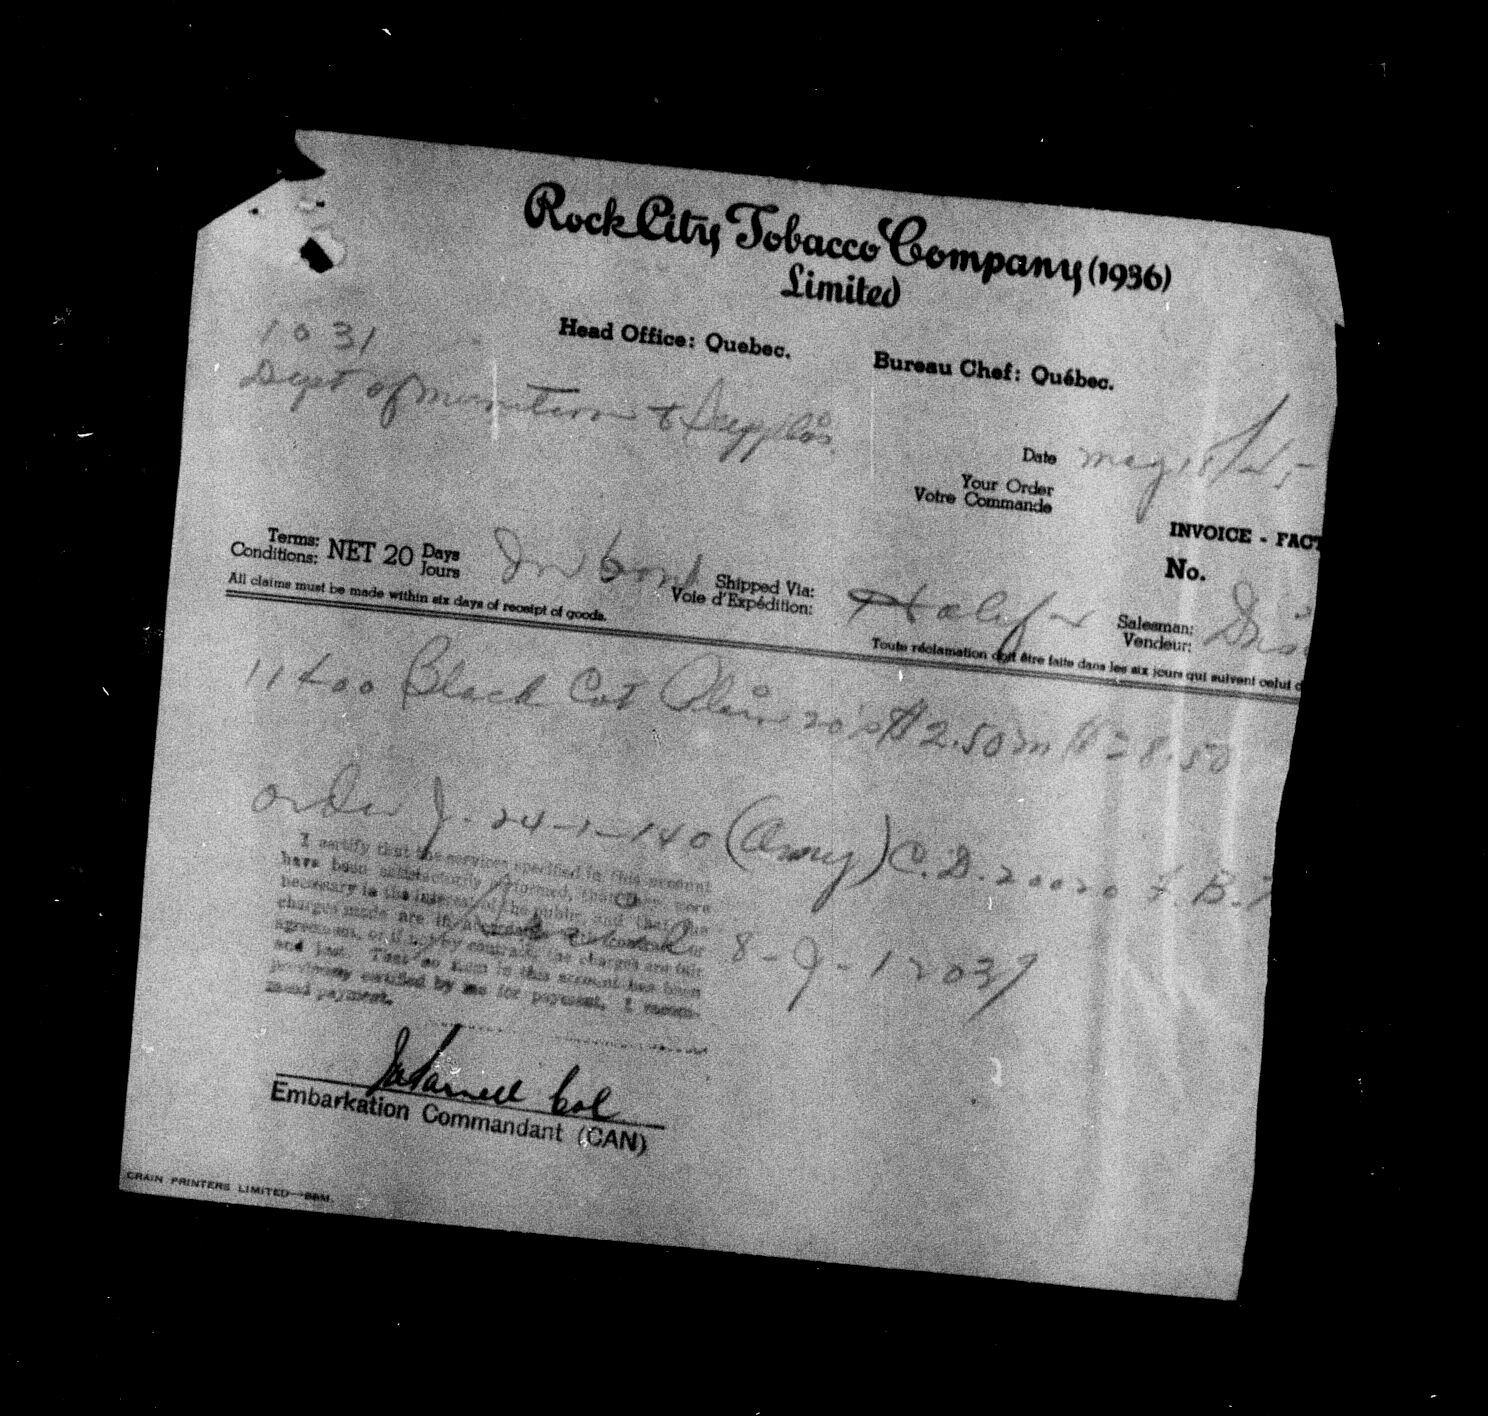 Rock City Tobacco Company (1936)
Limited
Head Office: Quebec.
Bureau Chef: Québec.
1031
Dept of Munitions & Supplies
Date May
Your Order
Votre Commande
INVOICE - FACT
No.
Terms: NET 20 Days
Conditions: Jours
In bond
Shipped Via:
Voie d'Expédition:
Halifax
Salesman:
Vendeur:
All claims must be made within six days of receipt of goods.
Toute réclamation doit être faite dans les six jours qui suivent celui d
11400 Black Cat Plain 20's $2.50 m $28.50
order J-24-1-140 (Army) C.D. 20020 F.B.
I certify that the services specified in this account
have been satisfactorily performed, that they were
necessary in the interest of the public and that the
charges made are in accordance with contract or
agreement, or if not by contract, the charges are fair
and just. That no item in this account has been
previously certified by me for payment. I recom-
mend payment.
8-J-12037
Col
Embarkation Commandant (CAN)
CRAIN PRINTERS LIMITED—